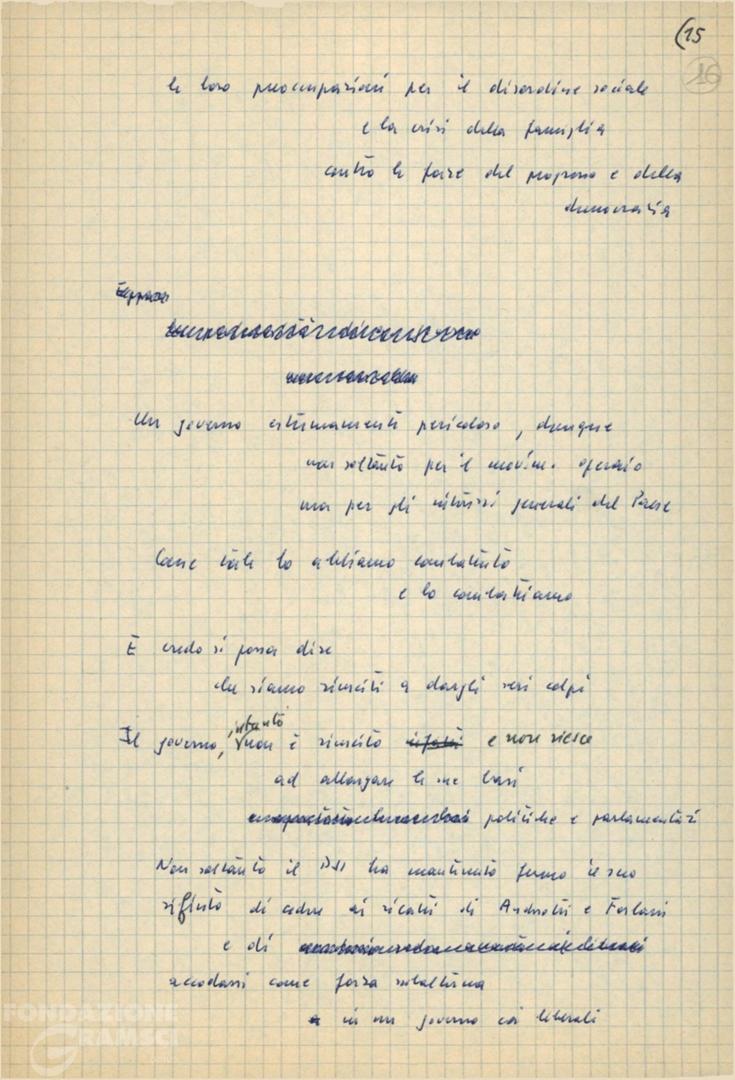 (15
16
le loro preoccupazioni per il disordine sociale
e la crisi della famiglia
contro le forze del progresso e della
democrazia
Un governo estremamente pericoloso, dunque
non soltanto per il movim. operaio
ma per gli interessi generali del Paese
Come tale lo abbiamo combattuto
e lo combattiamo
E credo si possa dire
che siamo riusciti a dargli seri colpi
intanto
Il governo, non è riuscito infatti e non riesce
ad allargare le sue basi
politiche e parlamentari
Non soltanto il PSI ha mantenuto fermo il suo
rifiuto di cedere ai ricatti di Andreotti e Forlani
e di
accodarsi come forza subalterna
a in un governo coi liberali
FONDAZIONE
GRAMSCI